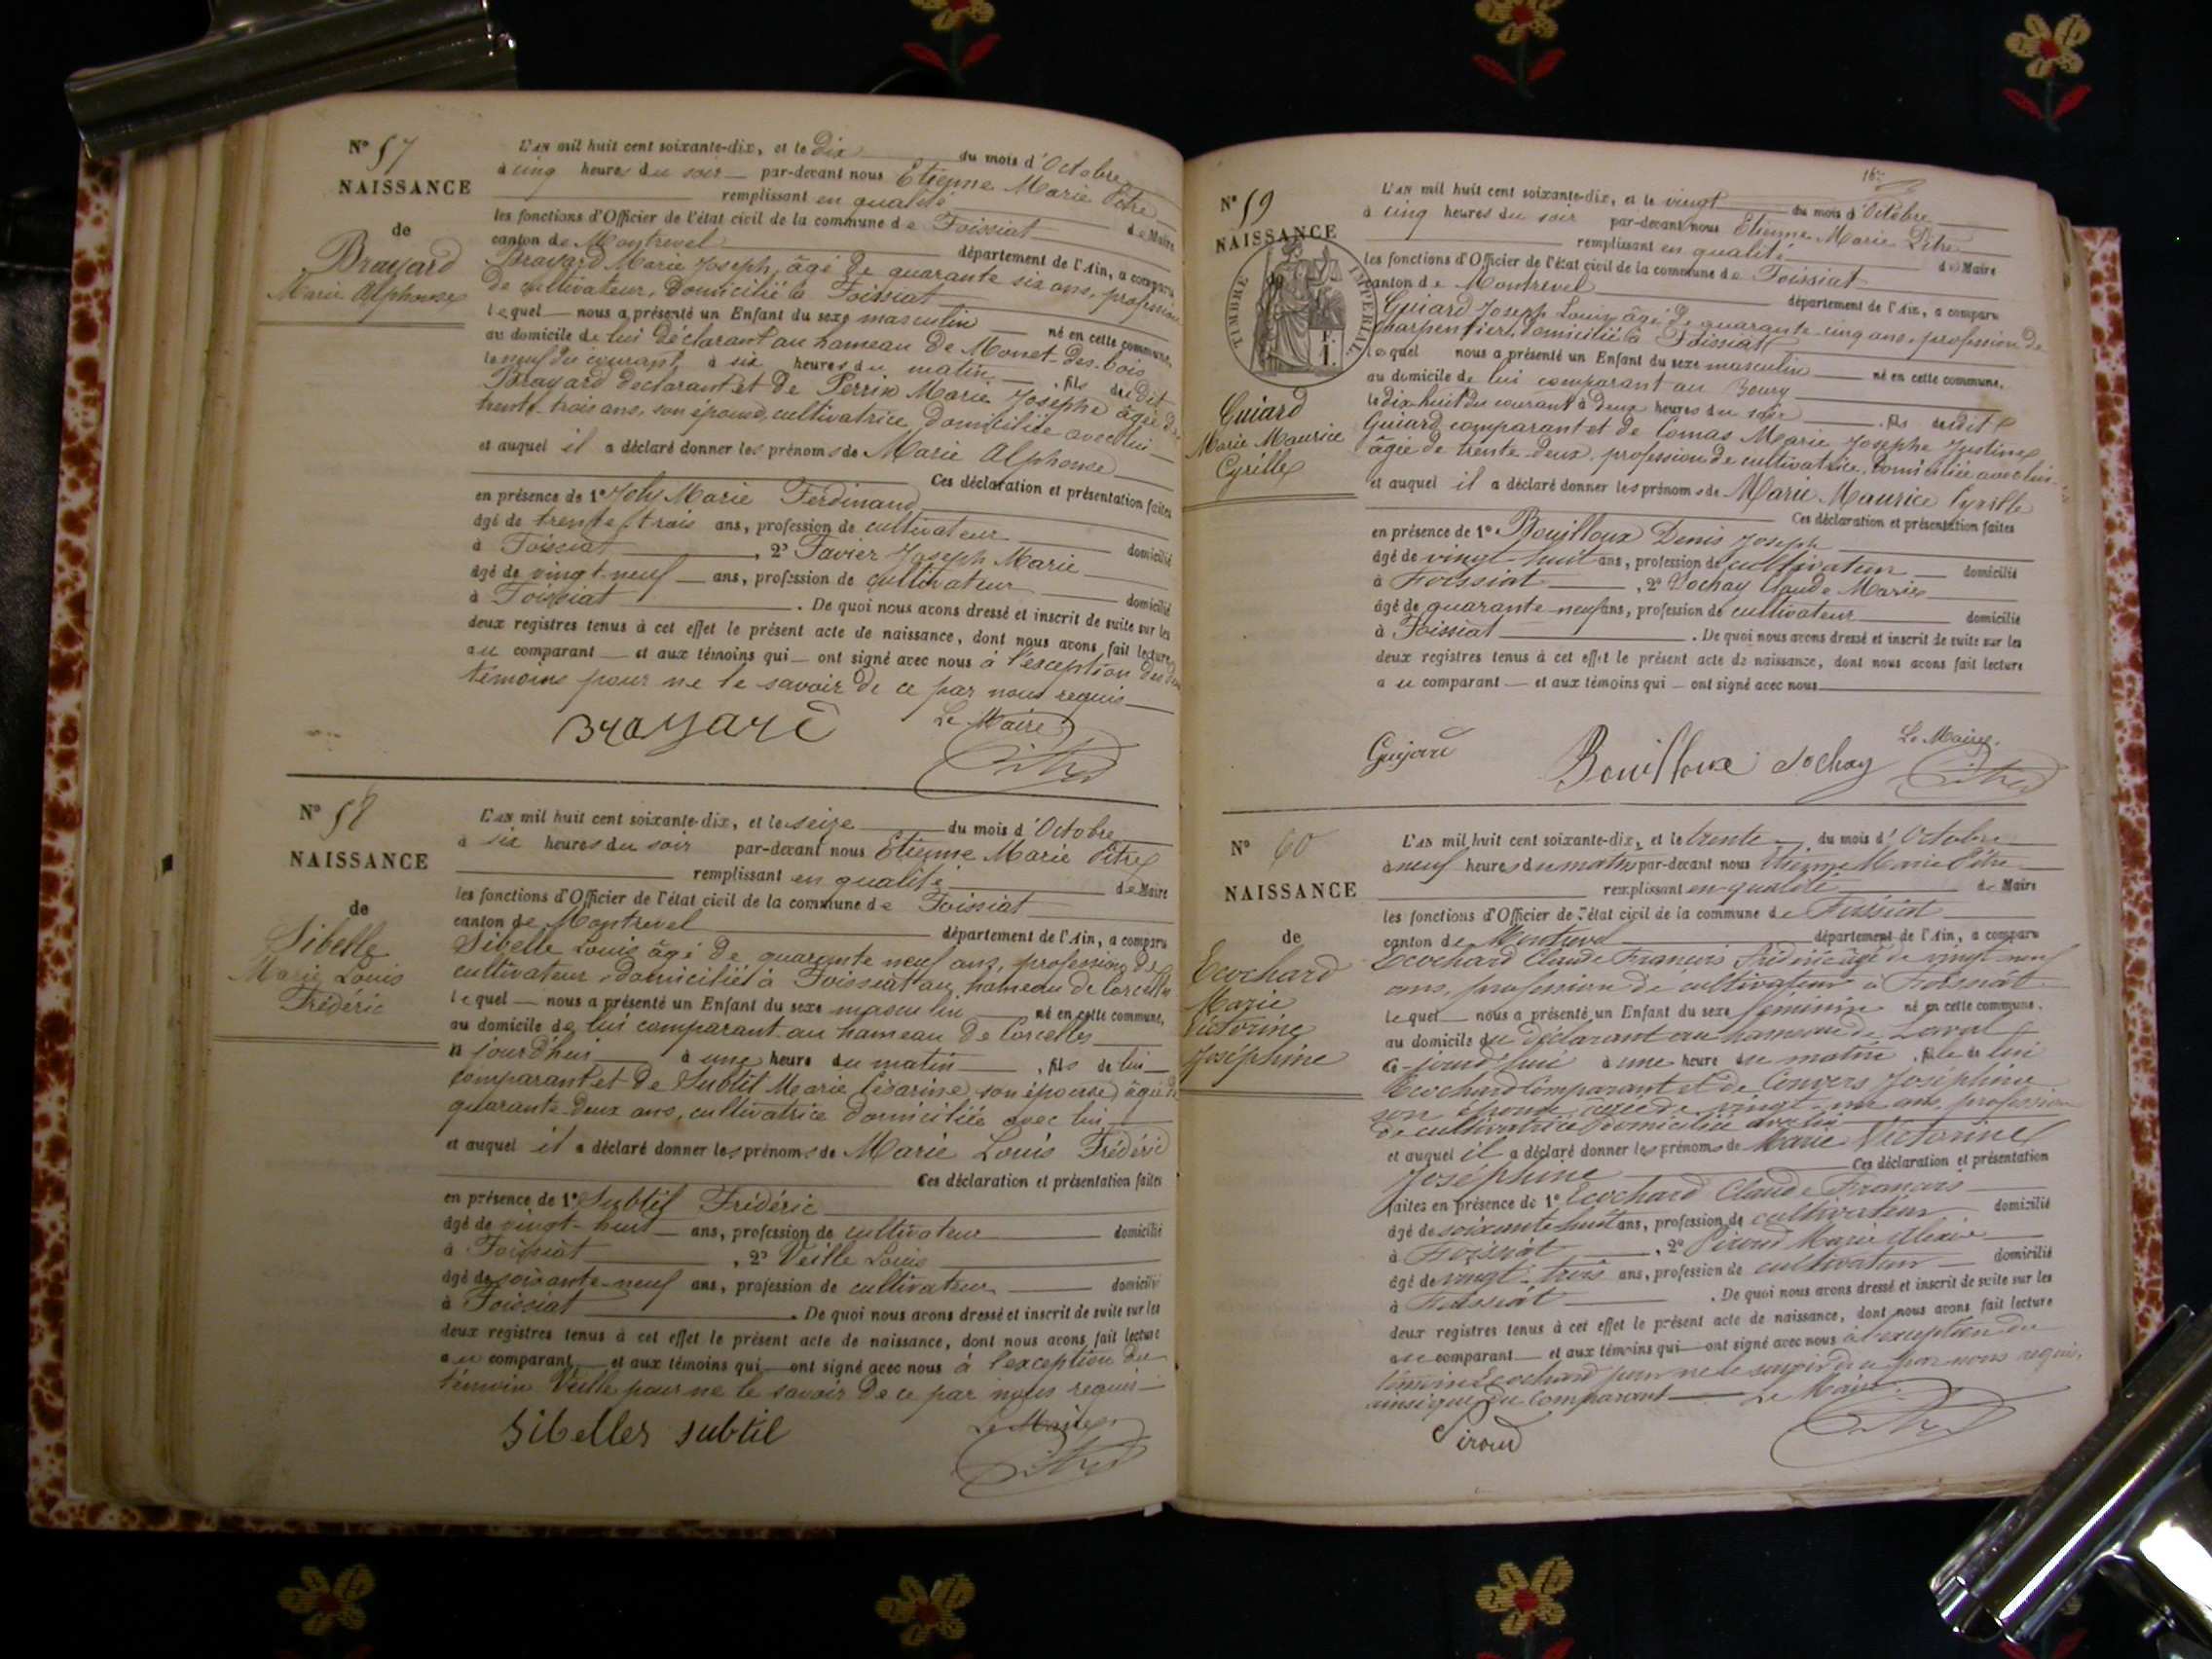 N° 57
NAISSANCE
de
Brayard
Marie Alphonse
L'AN mil huit cent soixante-dix, et le Dix du mois d'Octobre
à cinq heures du soir par-devant nous Etienne Marie Pitre
remplissant en qualité de Maire
les fonctions d'Officier de l'état civil de la commune de Foissiat
canton de Montrevel département de l'Ain, a comparu
Brayard Marie Joseph, âgé de quarante six ans, profession
de cultivateur, domicilié à Foissiat
lequel nous a présenté un Enfant du sexe masculin né en cette commune,
au domicile de lui déclarant au hameau de Monet-des-bois
le neuf du courant, à six heures du matin, fils de dit
Brayard déclarant et de Perrin Marie Josephe âgée de
trente-trois ans, son épouse, cultivatrice domiciliée avec lui
et auquel il a déclaré donner les prénoms de Marie Alphonse
Ces déclaration et présentation faites
en présence de 1° Joly Marie Ferdinand
âgé de trente trois ans, profession de cultivateur domicilié
à Foissiat, 2° Favier Joseph Marie
âgé de vingt-neuf ans, profession de cultivateur domicilié
à Foissiat. De quoi nous avons dressé et inscrit de suite sur les
deux registres tenus à cet effet le présent acte de naissance, dont nous avons fait lecture
au comparant et aux témoins qui ont signé avec nous à l'exception des deux
témoins pour ne le savoir de ce par nous requis
Brayard
Le Maire
Pitre
N° 58
NAISSANCE
de
Sibelle
Marie Louis
Frédéric
L'AN mil huit cent soixante-dix, et le seize du mois d'Octobre
à six heures du soir par-devant nous Etienne Marie Pitre
remplissant en qualité de Maire
les fonctions d'Officier de l'état civil de la commune de Foissiat
canton de Montrevel département de l'Ain, a comparu
Sibelle Louis âgé de quarante neuf ans, profession de
cultivateur, domicilié à Foissiat au hameau de Corcelles
lequel nous a présenté un Enfant du sexe masculin né en cette commune,
au domicile de lui comparant au hameau de Corcelles
jourd'hui à une heure du matin, fils de lui
comparant et de Subtil Marie Césarine, son épouse, âgée de
quarante-deux ans, cultivatrice domiciliée avec lui
et auquel il a déclaré donner les prénoms de Marie Louis Frédéric
Ces déclaration et présentation faites
en présence de 1° Subtil Frédéric
âgé de vingt-huit ans, profession de cultivateur domicilié
à Foissiat, 2° Veille Louis
âgé de soixante-neuf ans, profession de cultivateur domicilié
à Foissiat. De quoi nous avons dressé et inscrit de suite sur les
deux registres tenus à cet effet le présent acte de naissance, dont nous avons fait lecture
au comparant et aux témoins qui ont signé avec nous à l'exception du
témoin Veille pour ne le savoir de ce par nous requis
Sibelles subtil
Le Maire
Pitre
N° 59
NAISSANCE
TIMBRE IMPERIAL
Guiard
Marie Maurice
Cyrille
L'AN mil huit cent soixante-dix, et le vingt du mois d'Octobre
à cinq heures du soir par-devant nous Etienne Marie Pitre
remplissant en qualité de Maire
les fonctions d'Officier de l'état civil de la commune de Foissiat
canton de Montrevel département de l'Ain, a comparu
Guiard Joseph Louis âgé de quarante-cinq ans, profession de
charpentier, domicilié à Foissiat
lequel nous a présenté un Enfant du sexe masculin né en cette commune,
au domicile de lui comparant au Bourg
le dix huit du courant à deux heures du soir, fils du dit
Guiard comparant et de Comas Marie Josephe Justine
âgée de trente-deux, profession de cultivatrice domiciliée avec lui
et auquel il a déclaré donner les prénoms de Marie Maurice Cyrille
Ces déclaration et présentation faites
en présence de 1° Bouilloux Denis Joseph
âgé de vingt-huit ans, profession de cultivateur domicilié
à Foissiat, 2° Sochay Claude Marie
âgé de quarante-neuf ans, profession de cultivateur domicilié
à Foissiat. De quoi nous avons dressé et inscrit de suite sur les
deux registres tenus à cet effet le présent acte de naissance, dont nous avons fait lecture
au comparant et aux témoins qui ont signé avec nous
Guiard Bouilloux Sochay
Le Maire
Pitre
N° 60
NAISSANCE
de
Ecochard
Marie
Victorine
Joséphine
L'AN mil huit cent soixante-dix, et le trente du mois d'Octobre
à neuf heures du matin par-devant nous Etienne Marie Pitre
remplissant en qualité de Maire
les fonctions d'Officier de l'état civil de la commune de Foissiat
canton de Montrevel département de l'Ain, a comparu
Ecochard Claude François Frédéric âgé de vingt-neuf
ans, profession de cultivateur à Foissiat
lequel nous a présenté un Enfant du sexe féminin né en cette commune,
au domicile du déclarant au hameau de Laval
ce-jourd'hui à une heure du matin, fille de lui
Ecochard comparant et de Convers Joséphine
son épouse, âgée de vingt-un ans, profession
de cultivatrice domiciliée avec lui
et auquel il a déclaré donner les prénoms de Marie Victorine
Joséphine Ces déclaration et présentation
faites en présence de 1° Ecochard Claude François
âgé de soixante-huit ans, profession de cultivateur domicilié
à Foissiat, 2° Piroud Marie Alexis
âgé de vingt-trois ans, profession de cultivateur domicilié
à Foissiat. De quoi nous avons dressé et inscrit de suite sur les
deux registres tenus à cet effet le présent acte de naissance, dont nous avons fait lecture
au comparant et aux témoins qui ont signé avec nous à l'exception du
témoin Ecochard pour ne le savoir de ce par nous requis,
ainsi que du comparant Le Maire
Piroud
Pitre